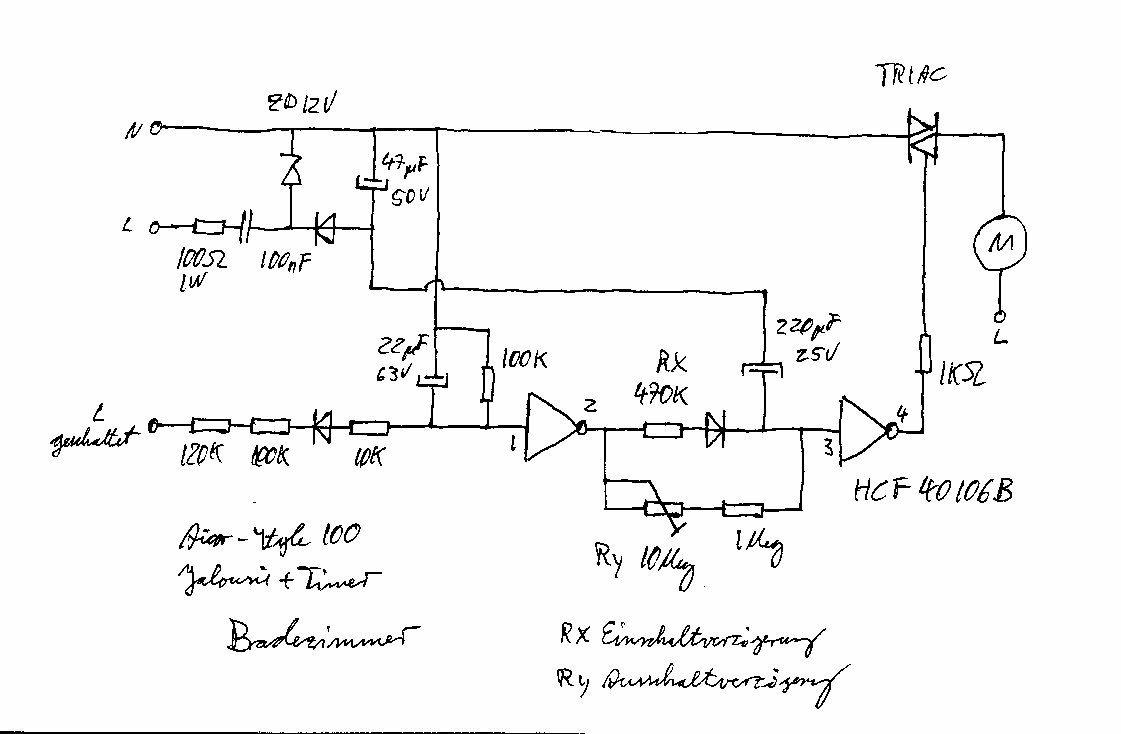 TRIAC
ZD12V
N
47µF
50V
L
100Ω
1W
100nF
M
L
220µF
25V
22µF
63V
100K
RX
470K
1KΩ
L
geschaltet
120K
100K
10K
1
2
3
4
HCF 40106B
Ry 10Meg
1Meg
-Style 100
Jalousie + Timer
Badezimmer
RX Einschaltverzögerung
Ry Ausschaltverzögerung